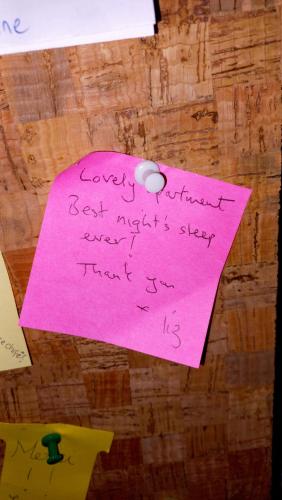 ne
Lovely partment
Best night's sleep
ever!
Thank you
x
liz